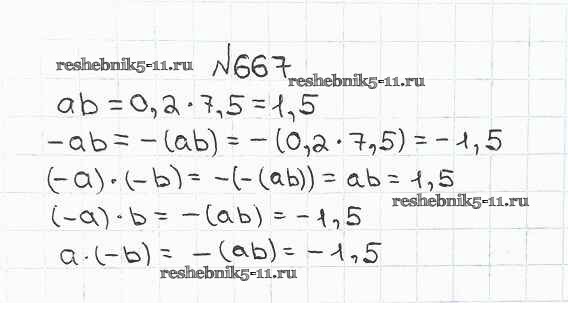 reshebnik5-11.ru №667
reshebnik5-11.ru
ab = 0,2 · 7,5 = 1,5
-ab = -(ab) = -(0,2 · 7,5) = -1,5
(-a) · (-b) = -(-(ab)) = ab = 1,5
reshebnik5-11.ru
(-a) · b = -(ab) = -1,5
a · (-b) = -(ab) = -1,5
reshebnik5-11.ru